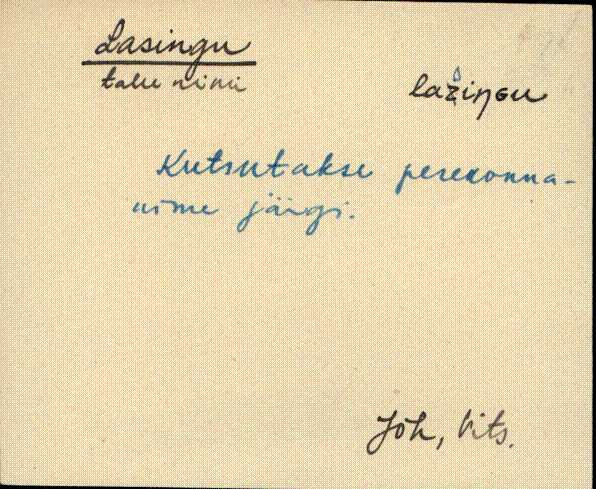 Lasingu
talu nimi
lažiŋɢu
Kutsutakse perekonna-
nime järgi.
Jõh, Vits.